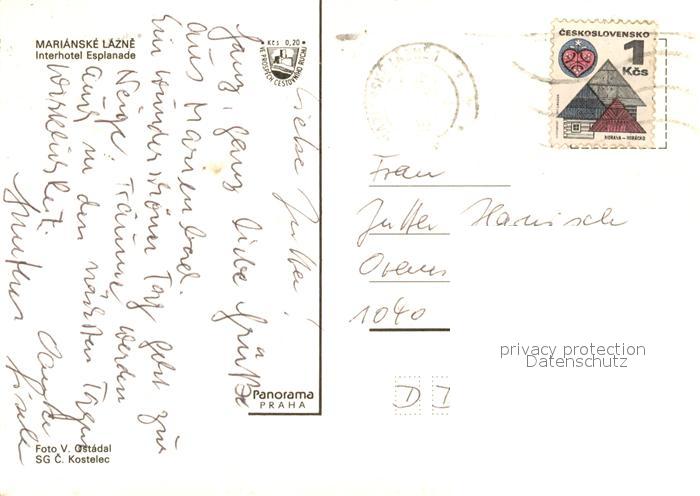 MARIÁNSKÉ LÁZNĚ
Interhotel Esplanade
Kčs 0,20
VE PROSPĚCH CESTOVNÍHO RUCHU
Liebe Jutta!
Ganz, ganz liebe Grüße
aus Marienbad.
Ein wunderschöner Tag geht zur
Neige. Träume werden
auch in den nächsten Tagen
Wirklichkeit.
Foto V. Ostádal
SG Č. Kostelec
Panorama
PRAHA
ČESKOSLOVENSKO
1
Kčs
MORAVA - HORÁCKO
Frau
1040
privacy protection
Datenschutz
D